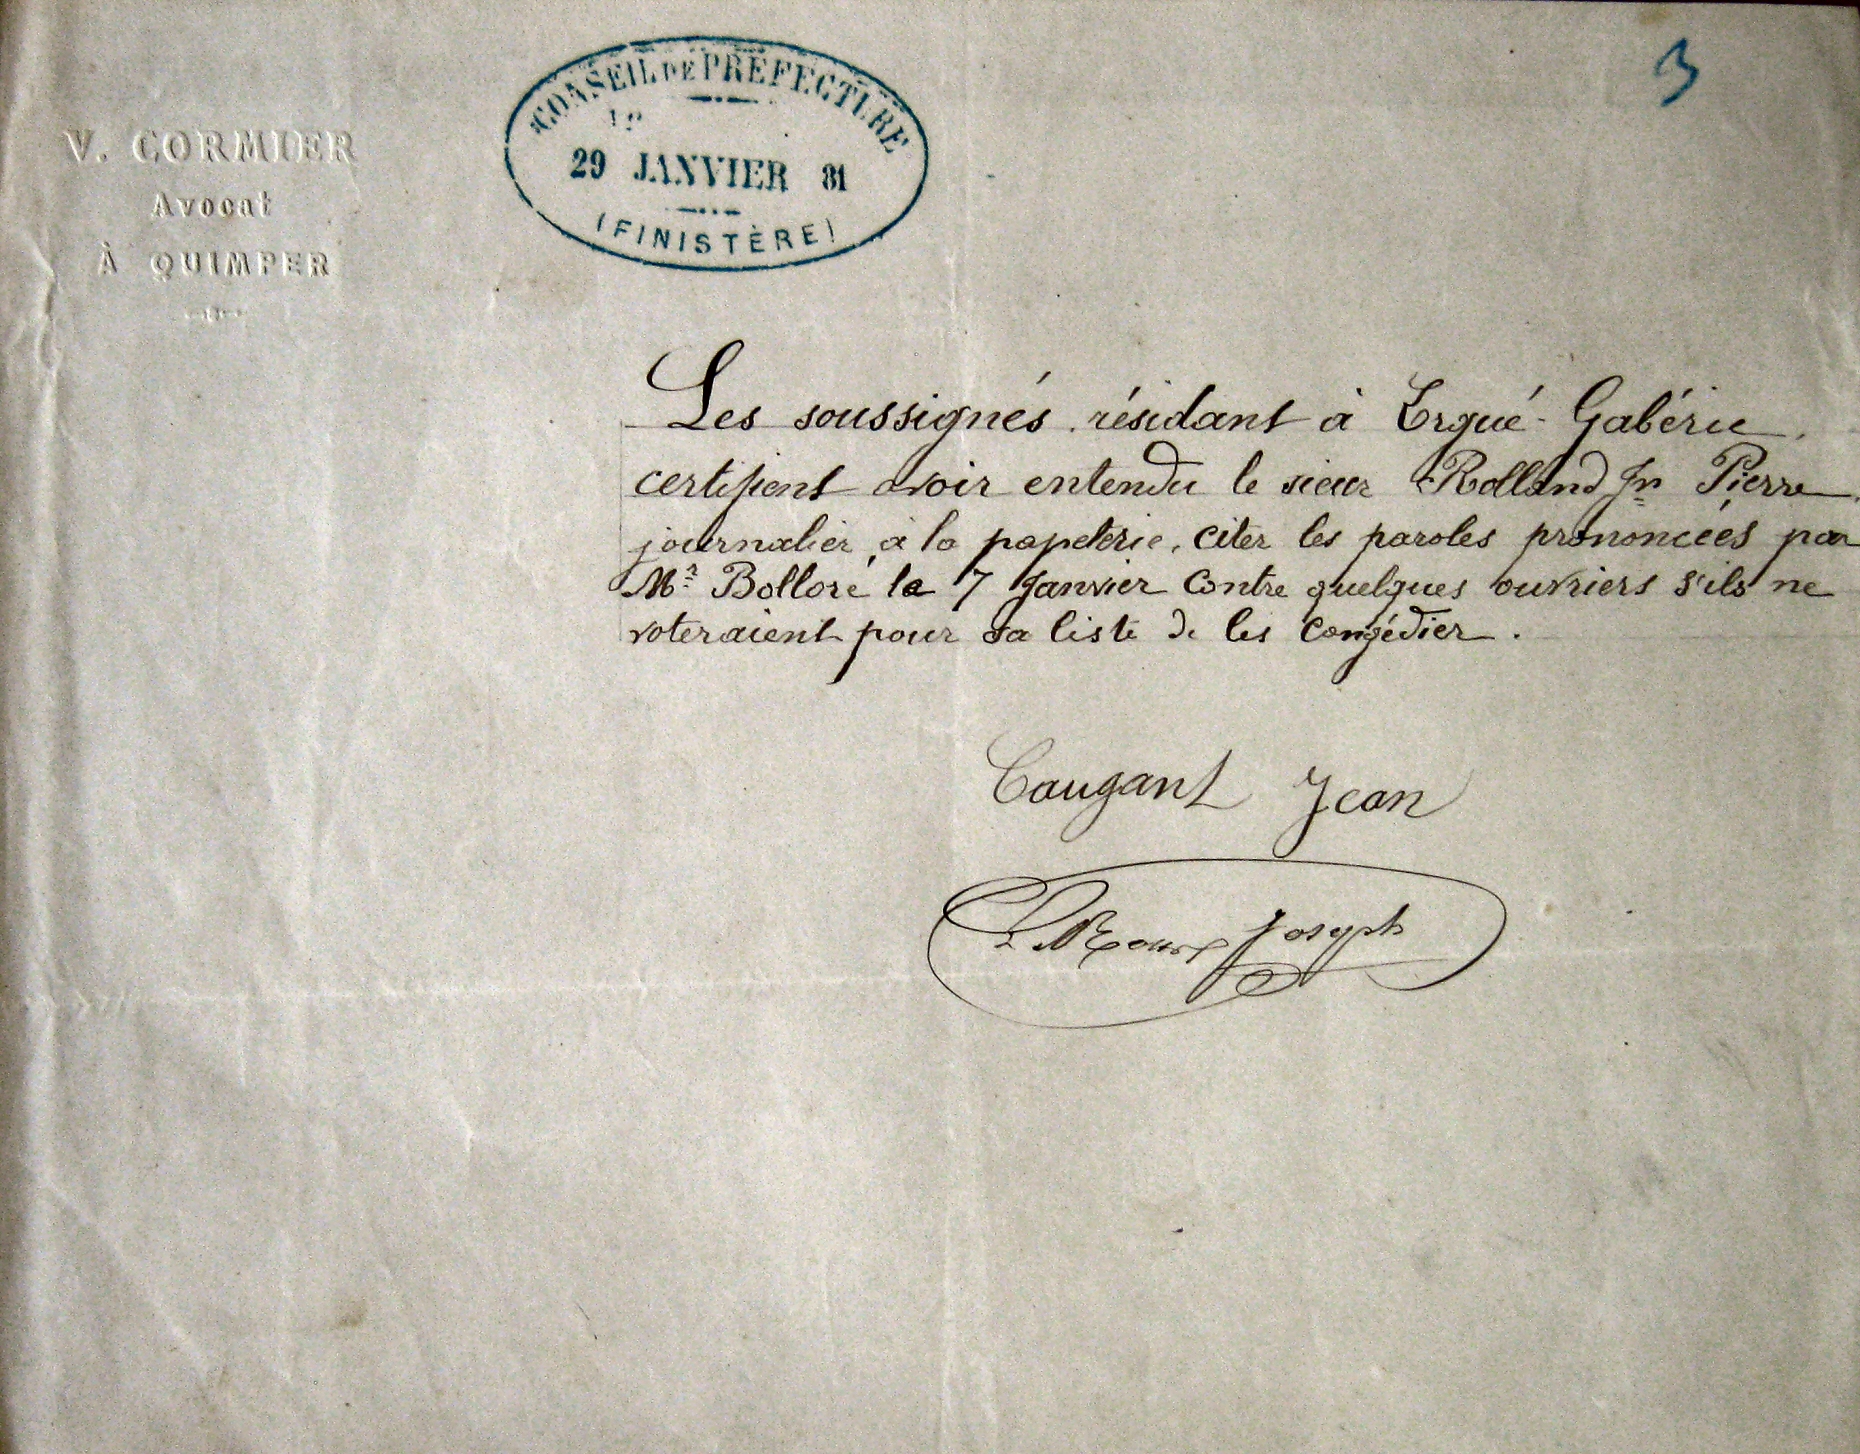 V. CORMIER
Avocat
À QUIMPER
CONSEIL DE PRÉFECTURE
29 JANVIER 81
(FINISTÈRE)
3
Les soussignés résidant à Ergué-Gabéric,
certifient avoir entendu le sieur Rolland Jn Pierre,
journalier à la papeterie, citer les paroles prononcées par
Mr Bolloré le 7 Janvier contre quelques ouvriers s'ils ne
voteraient pour sa liste de les congédier.
Caugant Jean
Joseph